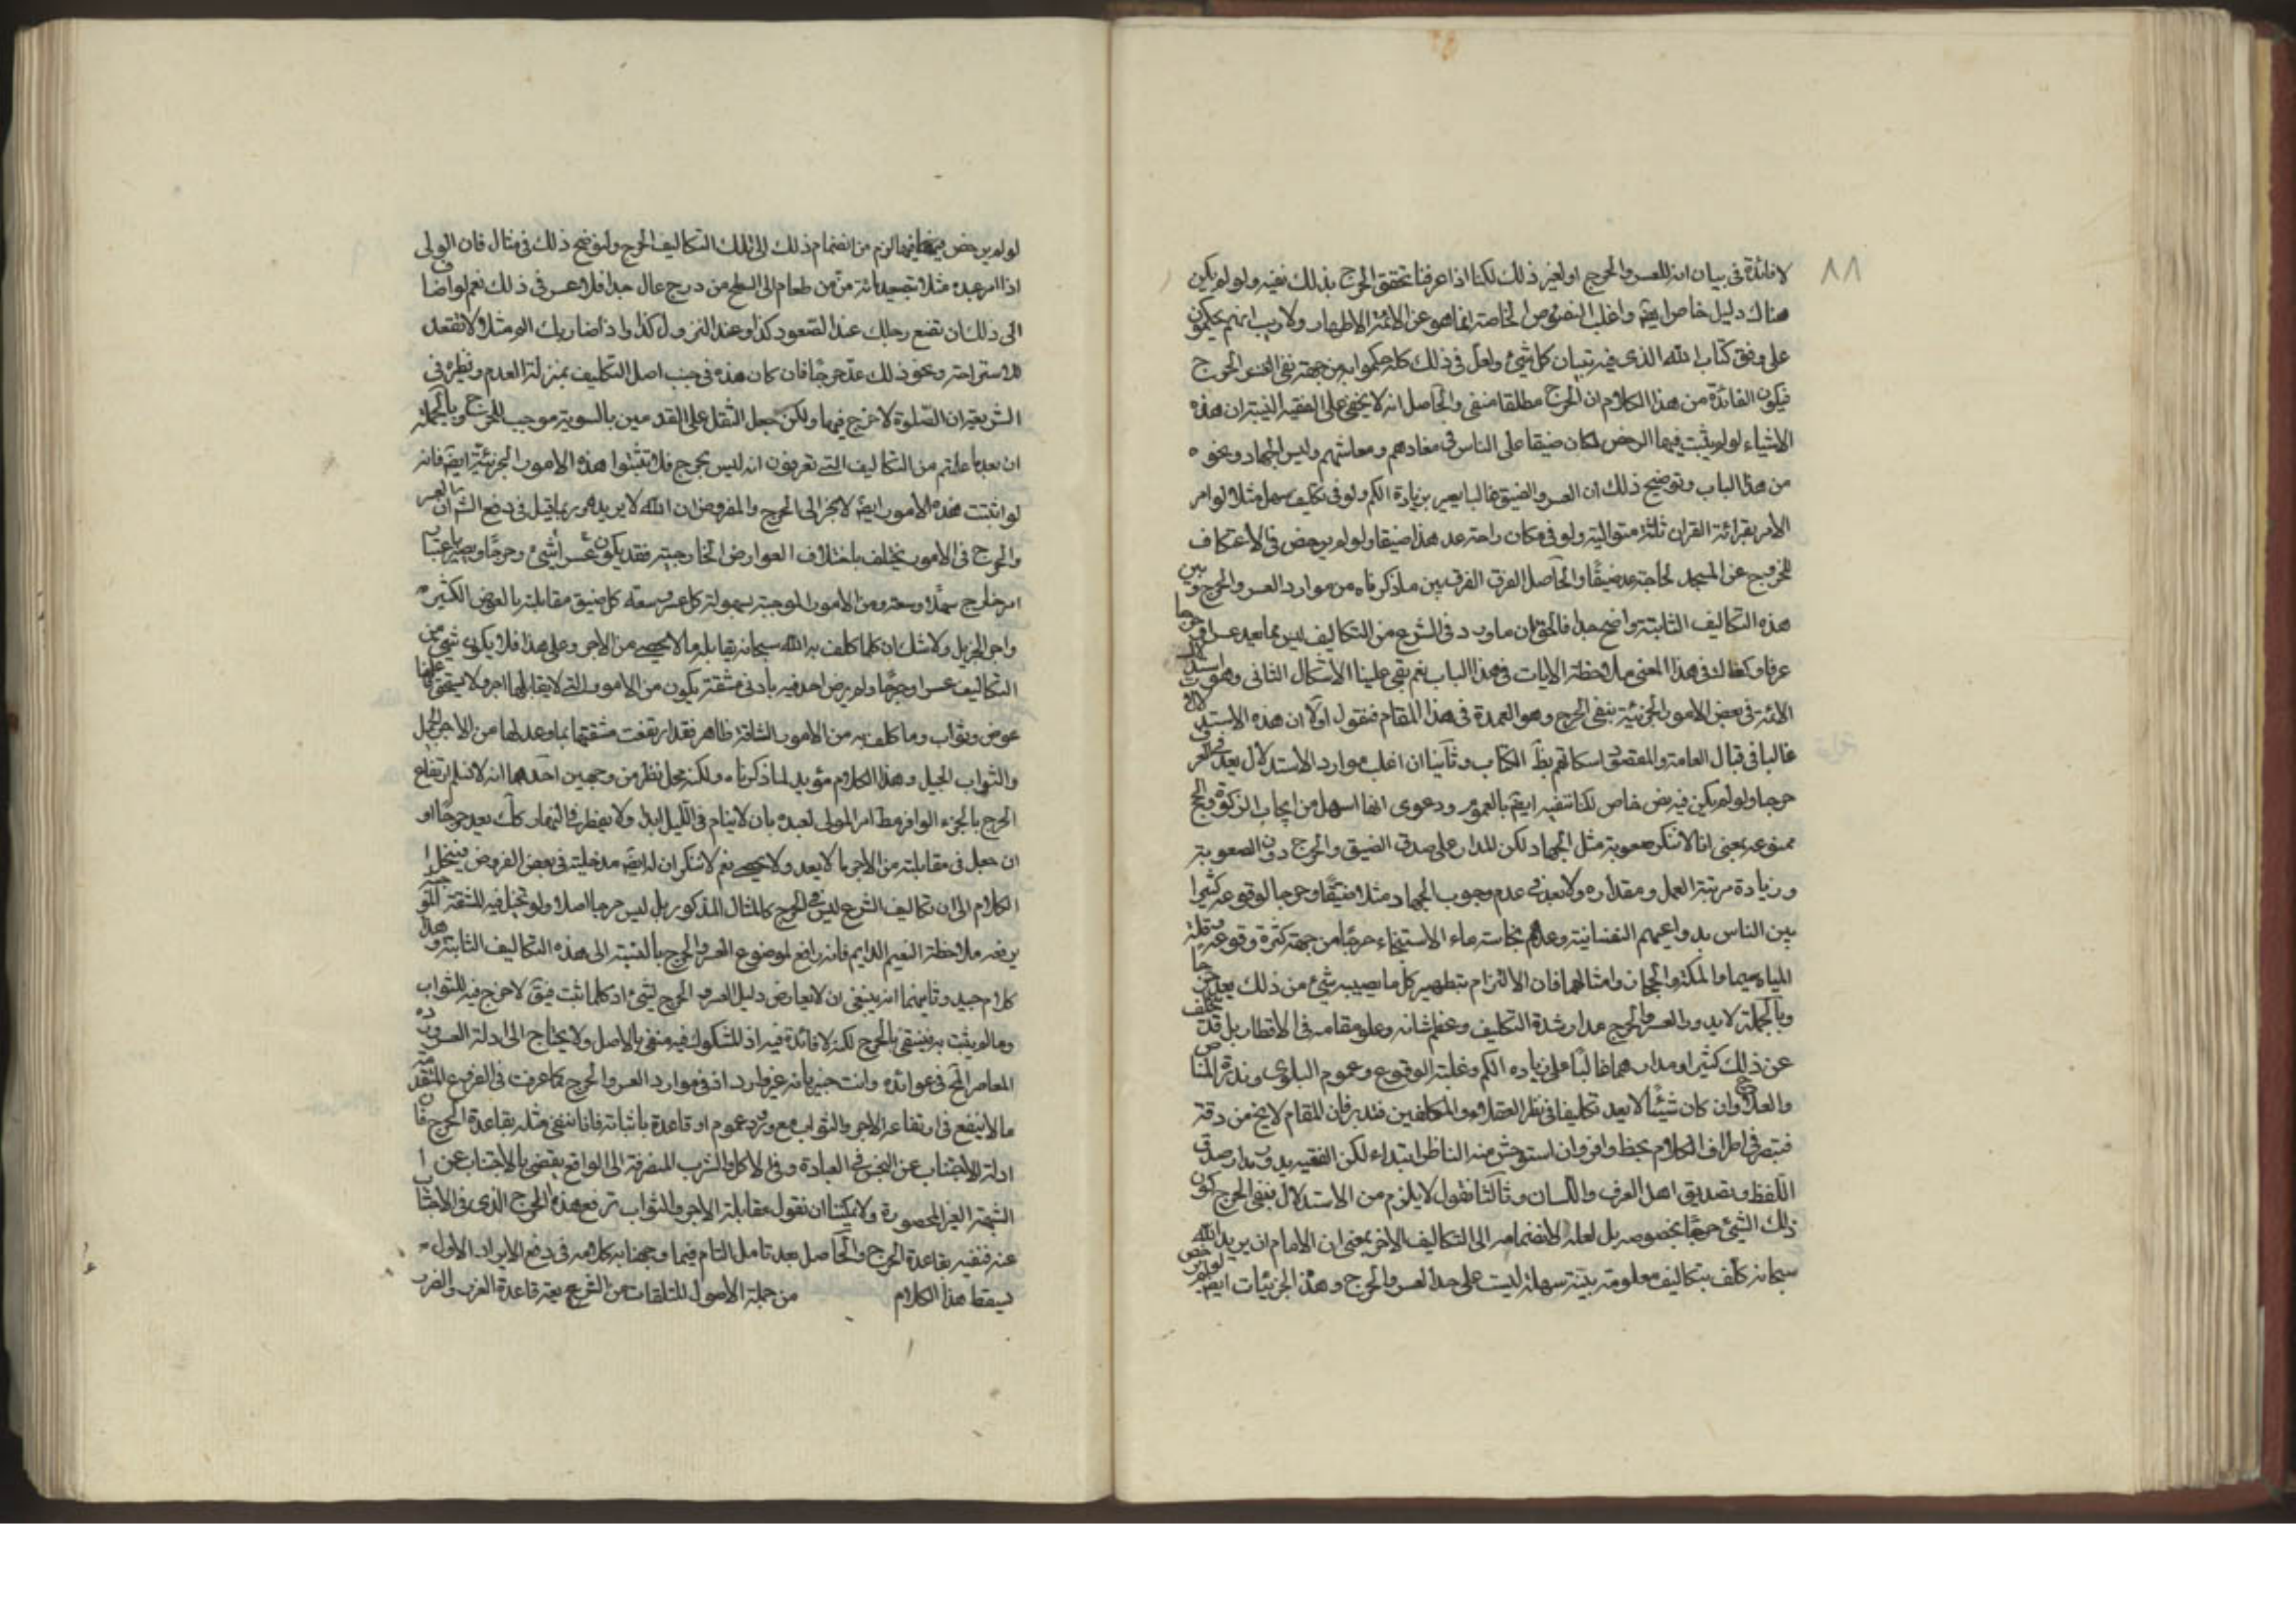 ٨٨
لا فائدة فى بيان انه للعسر والحرج او لغير ذلك لكنا اذا عرفنا تحقق الحرج بذلك نفيه ولو لم يكن
هناك دليل خاص ايضا واغلب النصوص الخاصة انما هو عن الائمة الاطهار ولا ريب انهم يحكمون
على وفق كتاب الله الذى فيه تبيان كل شيئ ولعل فى ذلك كله حكموا به من جهة نفى العسر والحرج
فيكون الفائدة من هذا الكلام ان الحرج مطلقا منفى والحاصل انه لا يخفى على الفقيه النبيه ان هذه
الاشياء لو لم يثبت فيها الرخص لكان ضيقا على الناس فى معادهم ومعاشهم وليس الجهاد ونحوه
من هذا الباب وتوضيح ذلك ان العسر والضيق غالبا يصير بزيادة الكم ولو فى تكليف سهل مثلا لو امر
الامر بقرائة القران ثلثا متوالية ولو فى مكان راحة عد هذا ضيقا ولو لم يرخص فى الاعتكاف
للخروج عن المسجد لحاجة عد ضيقا والحاصل الفرق الفرق بين ما ذكرناه من موارد العسر والحرج وبين
هذه التكاليف الثابتة واضح جدا فالحق ان ما ورد فى الشرع من التكاليف ليس مما يعد عسرا
عرفا وكفاك فى هذا المعنى ملاحظة الايات فى هذا الباب نعم بقى علينا الاشكال الثانى وهو استدلال
الائمة فى بعض الامور الجزئية بنفى الحرج وهو العمدة فى هذا المقام فنقول اولا ان هذه الاستدلال
غالبا فى قبال العامة والمقصود اسكاتهم بظ الكتاب وثانيا ان اغلب موارد الاستدلال يعد فى العرف
حرجا ولو لم يكن فيه نص خاص لكنا ننفيه ايضا بالعموم ودعوى انها اسهل من ايجاب الزكوة والحج
ممنوعة بمعنى انا لا ننكر صعوبة مثل الجهاد لكن المدار على صدق الضيق والحرج دون الصعوبة
وزيادة مرتبة العمل ومقداره ولا بعد فى عدم وجوب الجهاد مثلا ضيقا وحرجا لوقوعه كثيرا
بين الناس بدواعيهم النفسانية وعدم نجاسة ماء الاستنجاء حرجا من جهة كثرة وقوعه وقلة
المياه سيما والمكة والحجاز وامثالهما فان الالتزام بتطهير كل ما يصيبه شيئ من ذلك يعد حرجا
وبالجملة لا يدور العسر والحرج مدار شدة التكليف وعظم شانه وعلو مقامه فى الاقطار بل قد يتخلف
عن ذلك كثيرا ومدارهما غالبا على زياده الكم وغلبة الوقوع وعموم البلوى وندرة المناص
والعلاج وان كان شيئا لا يعد تكليفا فى نظر العقلاء والمكلفين فتدبر فان المقام لا يخ من دقة
فتبصر فى اطراف الكلام بحظ وافر وان استوحش منه الناظر ابتداء لكن الفقيه يدور مدار صدق
اللفظ وتصديق اهل العرف واللسان وثالثا نقول لا يلزم من الاستدلال بنفى الحرج كون
ذلك الشيئ حرجا بخصوصه بل لعله لانضمامه الى التكاليف الاخر بمعنى ان الامام ان يريد الله
سبحانه كلف بتكاليف معلومة بينة سهلة ليست على حد العسر والحرج وهذه الجزئيات ايضا لو لم يرخص
لو لم يرخص فيها لزم من انضمام ذلك الى تلك التكاليف الحرج ولنوضح ذلك فى مثال فان المولى
اذا امر عبده مثلا بتصعيد مائة من من طعام الى السطح من درج عال جدا فلا عسر فى ذلك نعم لو اضاف
الى ذلك ان تضع رجلك عند الصعود كذا وعند النزول كذا واذا ضاربك الم مثلا لا تقعد
للاستراحة ونحو ذلك عد حرجا فان كان هذه فى جنب اصل التكليف بمنزلة العدم ونظيره فى
الشريعة ان الصلوة لا حرج فيها ولكن جعل الثقل على القدمين بالسوية موجب للحرج وبالجملة
ان بعد ما علمتم من التكاليف التى تعرفون انه ليس بحرج فلا تثبتوا هذه الامور الجزئية ايضا فانه
لو اثبتت هذه الامور ايضا لانجر الى الحرج والمفروض ان الله لا يريده وربما قيل فى دفع الثانى ان العسر
والحرج فى الامور يختلف باختلاف العوارض الخارجية فقد يكون عسرا شيئ وحرجا ويصير باعتبار
امر خارج سهلا وسعة ومن الامور الموجبة لسهولة كل عسر وسعة كل ضيق مقابلته بالعوض الكثير
واجر الجزيل ولا شك ان كلما كلف به الله سبحانه يقابله ما لا يحصى من الاجر وعلى هذا فلا يكون شيئ من
التكاليف عسرا وحرجا ولم يرض احد فيه بادنى مشقة يكون من الامور التى لا يقابلها اجر ولا يستحق عليها
عوض وثواب وما كلف به من الامور الشاقة ظاهر فقد ارتفعت مشقتها بما وعد لها من الاجر الجزيل
والثواب الجيل وهذا الكلام مؤيد لما ذكرناه ولكنه محل نظر من وجهين احدهما انه لا نسلم ارتفاع
الحرج بالجزء الوافر مط امر المولى لعبده بان لا ينام فى الليل ابدا ولا يفطر فى النهار كك يعد حرجا او
ان جعل فى مقابلته من الاجر ما لا يعد ولا يحصى نعم لا ننكر ان له ايضا مدخلية فى بعض الفروض فينحل
الكلام الى ان تكاليف الشرع ليس فى الحرج كالمثال المذكور بل ليس حرجا اصلا ولو تخيل فيه المشقة
يرفعه ملاحظة النعيم الدايم فانه رافع لموضوع العسر والحرج بالنسبة الى هذه التكاليف الثابتة وهذا
كلام جيد وثانيهما انه ينبغى ان لا يعارض دليل العسر والحرج لشيئ اذ كلما ثبت فيق لا حرج فيه للثواب
وما لم يثبت به فينفى بالحرج لكنه لا فائدة فيه اذ المشكوك فيه منفى بالاصل ولا يحتاج الى ادلة العسر ورده
المعاصر فى عوائده وانت خبير بانه غير وارد اذ فى موارد العسر والحرج كما عرفت فى الفروع المتقدمة
ما لا ينفع فى ارتفاعه الاجر والثواب مع ورود عموم او قاعدة باثباته فانا ننفى مثله بقاعدة الحرج فان
ادلة الاجتناب عن النجس فى العبادة وفى الاكل والشرب المنصرفة الى الواقع يقضى بالاجتناب عن
الشبهة الغير المحصورة ولا يمكننا ان نقول مقابلة الاجر والثواب ترفع هذه الحرج الذى فى الاجتناب
عنه فننفيه بقاعدة الحرج والحاصل بعد تامل التام فيما وجهنا به كلامه فى دفع الايراد الاول
يسقط هذا الكلام من جملة الاصول المتلقات من الشرع قاعدة الضرر والضرر